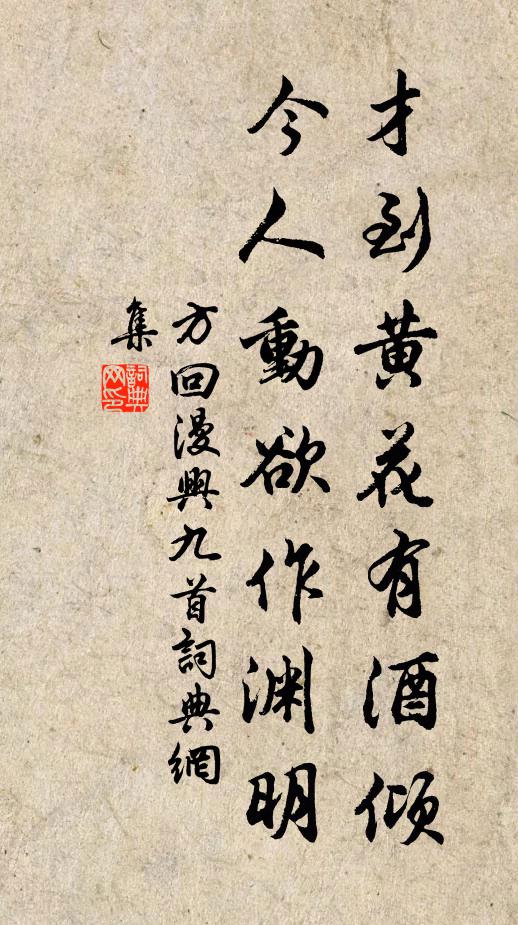 才到黄花有酒傾
今人動欲作渊明
方回漫興九首詞典網
集
詞典網印